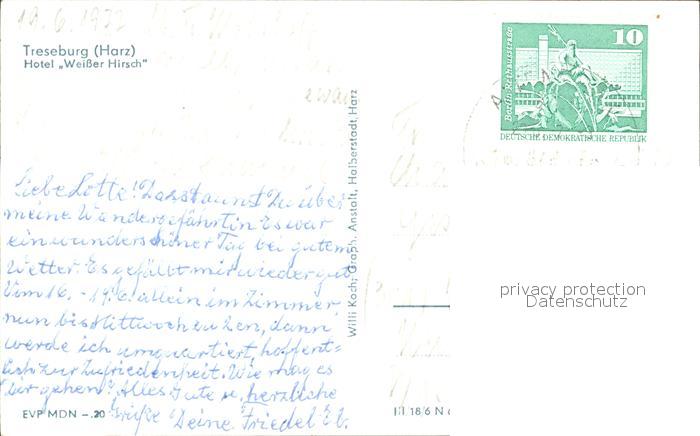 Treseburg (Harz)
Hotel „Weißer Hirsch"
Liebe Lotte! Da staunst Du über
meine Wandergefährtin Es war
ein wunderschöner Tag bei gutem
Wetter. Es gefällt mir wieder gut
Vom 16. - 19.6. allein im Zimmer,
nun bis Mittwoch zu 2en, dann
werde ich umquartiert, hoffent=
lich zur Zufriedenheit. Wie mag es
Dir gehen? Alles Gute u. herzliche
Grüße Deine Friedel
EVP MDN –.20
Willi Koch, Graph. Anstalt, Halberstadt, Harz
III 18 6 N
10
Berlin, Rathausstraße
DEUTSCHE DEMOKRATISCHE REPUBLIK
privacy protection
Datenschutz